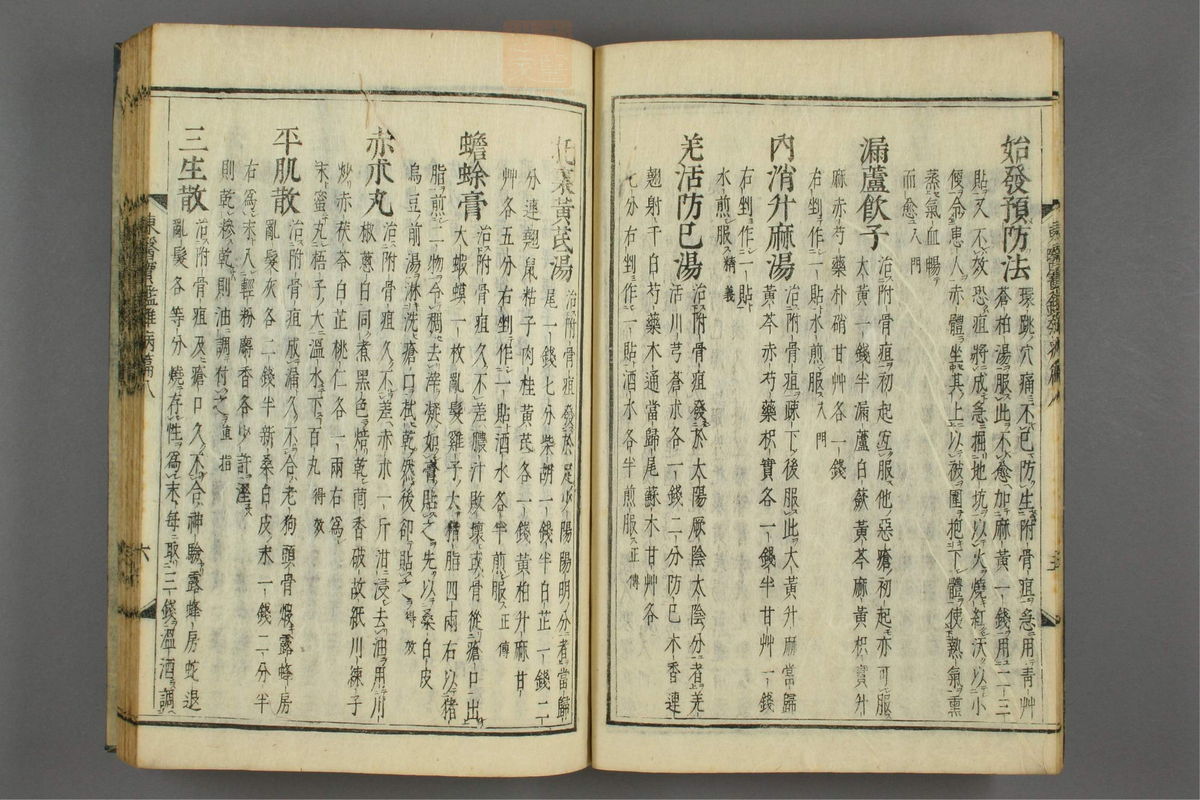 始發預防法 環跳穴痛不已防生附骨疽急用青艸
蒼柏湯服此不愈加麻黃一錢用二三
貼又不效恐疽將成急掘地坑以火燒紅沃以小
便令患人赤體坐其上以被圍抱下體使熱氣熏
蒸氣血暢而愈入門
漏蘆飮子 治附骨疽初起宜服他惡瘡初起亦可服
大黃一錢半漏蘆白蘞黃芩麻黃枳實升
麻赤芍藥朴硝甘艸各一錢
右剉作一貼水煎服入門
內消升麻湯 治附骨疽疎下後服此大黃升麻當歸
黃芩赤芍藥枳實各一錢半甘艸一錢
右剉作一貼
水煎服精義
羌活防已湯 治附骨疽發於太陽厥陰太陰分者羌
活川芎蒼朮各一錢二分防已木香連
翹射干白芍藥木通當歸尾蘇木甘艸各
七分右剉作一貼酒水各半煎服正傳
黃芪湯 治附骨疽發於足少陽陽明分者當歸
尾一錢七分柴胡一錢半白芷一錢二
分連翹鼠粘子肉桂黃芪各一錢黃柏升麻甘
艸各五分右剉作一貼酒水各半煎服正傳
蟾蜍膏 治附骨疽久不差膿汁敗壞或骨從瘡口出
大蝦蟆一枚亂髮雞子大猪脂四兩右以猪
脂煎二物令稠去滓凝如膏貼之先以桑白皮
烏豆前湯淋洗瘡口拭乾然後卻貼之得效
赤朮丸 治附骨疽久不差赤朮一斤泔浸去油用川
椒蔥白同煮黑色焙乾茴香破故紙川練子
炒赤茯苓白芷桃仁各一兩右爲
末蜜丸梧子大溫水下百丸得效
平肌散 治附骨疽成漏久不合老狗頭骨煆露蜂房
亂髮灰各二錢半新桑白皮末一錢二分半
右爲末入輕粉麝香各少許溼
則乾糝乾則油調付之直指
三生散 治附骨疽及瘡口久不合神驗露蜂房蛇退
亂髮各等分燒存性爲末每取三錢溫酒調
東醫寶鑑雜病篇八
六